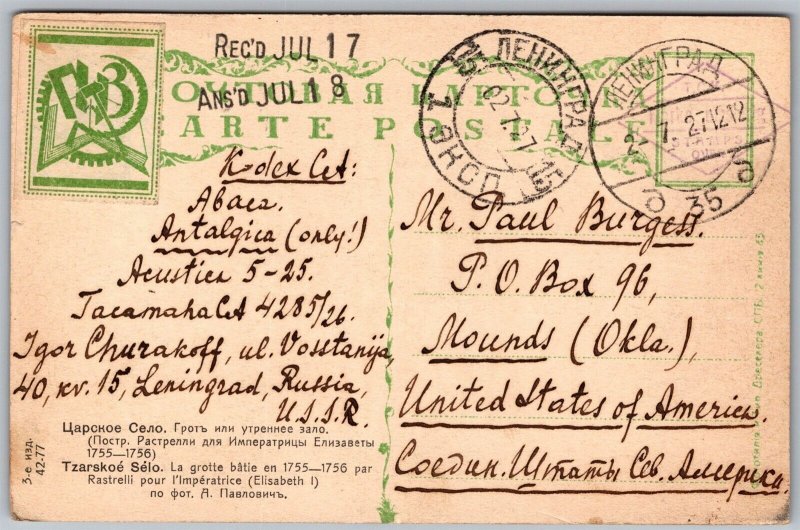 REC'D JUL 17
ANS'D JUL 18
ПОЧТОВАЯ КАРТОЧКА
CARTE POSTALE
ЛЕНИНГРАД
1 ЭКСП
ЛЕНИНГРАД
7.27 12
35
Kodex Cet:
Abaca
Antalgica (only!)
Acustica 5-25.
TacamahaCA 4285/26
Igor Churakoff, ul. Vosstanija,
40, kv. 15, Leningrad, Russia,
U.S.S.R.
Mr. Paul Burgess.
P. O. Box 96,
Mounds (Okla.),
United States of America.
Соедин. Штаты Сев. Америки.
Царское Село. Гротъ или утреннее зало.
(Постр. Растрелли для Императрицы Елизаветы
1755—1756)
Tzarskoé Sélo. La grotte bâtie en 1755—1756 par
Rastrelli pour l'Impératrice (Elisabeth I)
по фот. А. Павловичъ.
3-е изд.
42-77